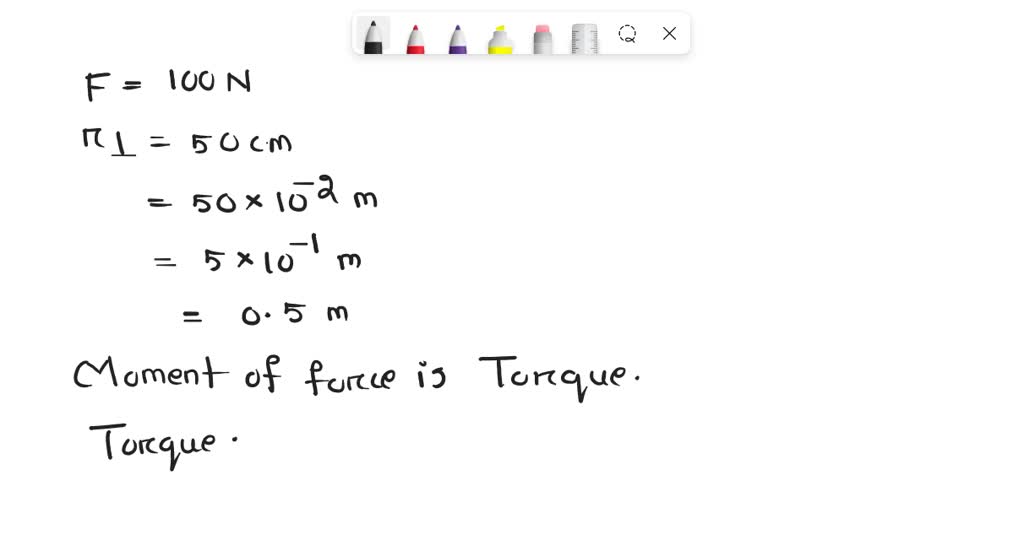 F = 100 N
r⊥ = 50 cm
= 50 × 10⁻² m
= 5 × 10⁻¹ m
= 0.5 m
Moment of force is Torque.
Torque.